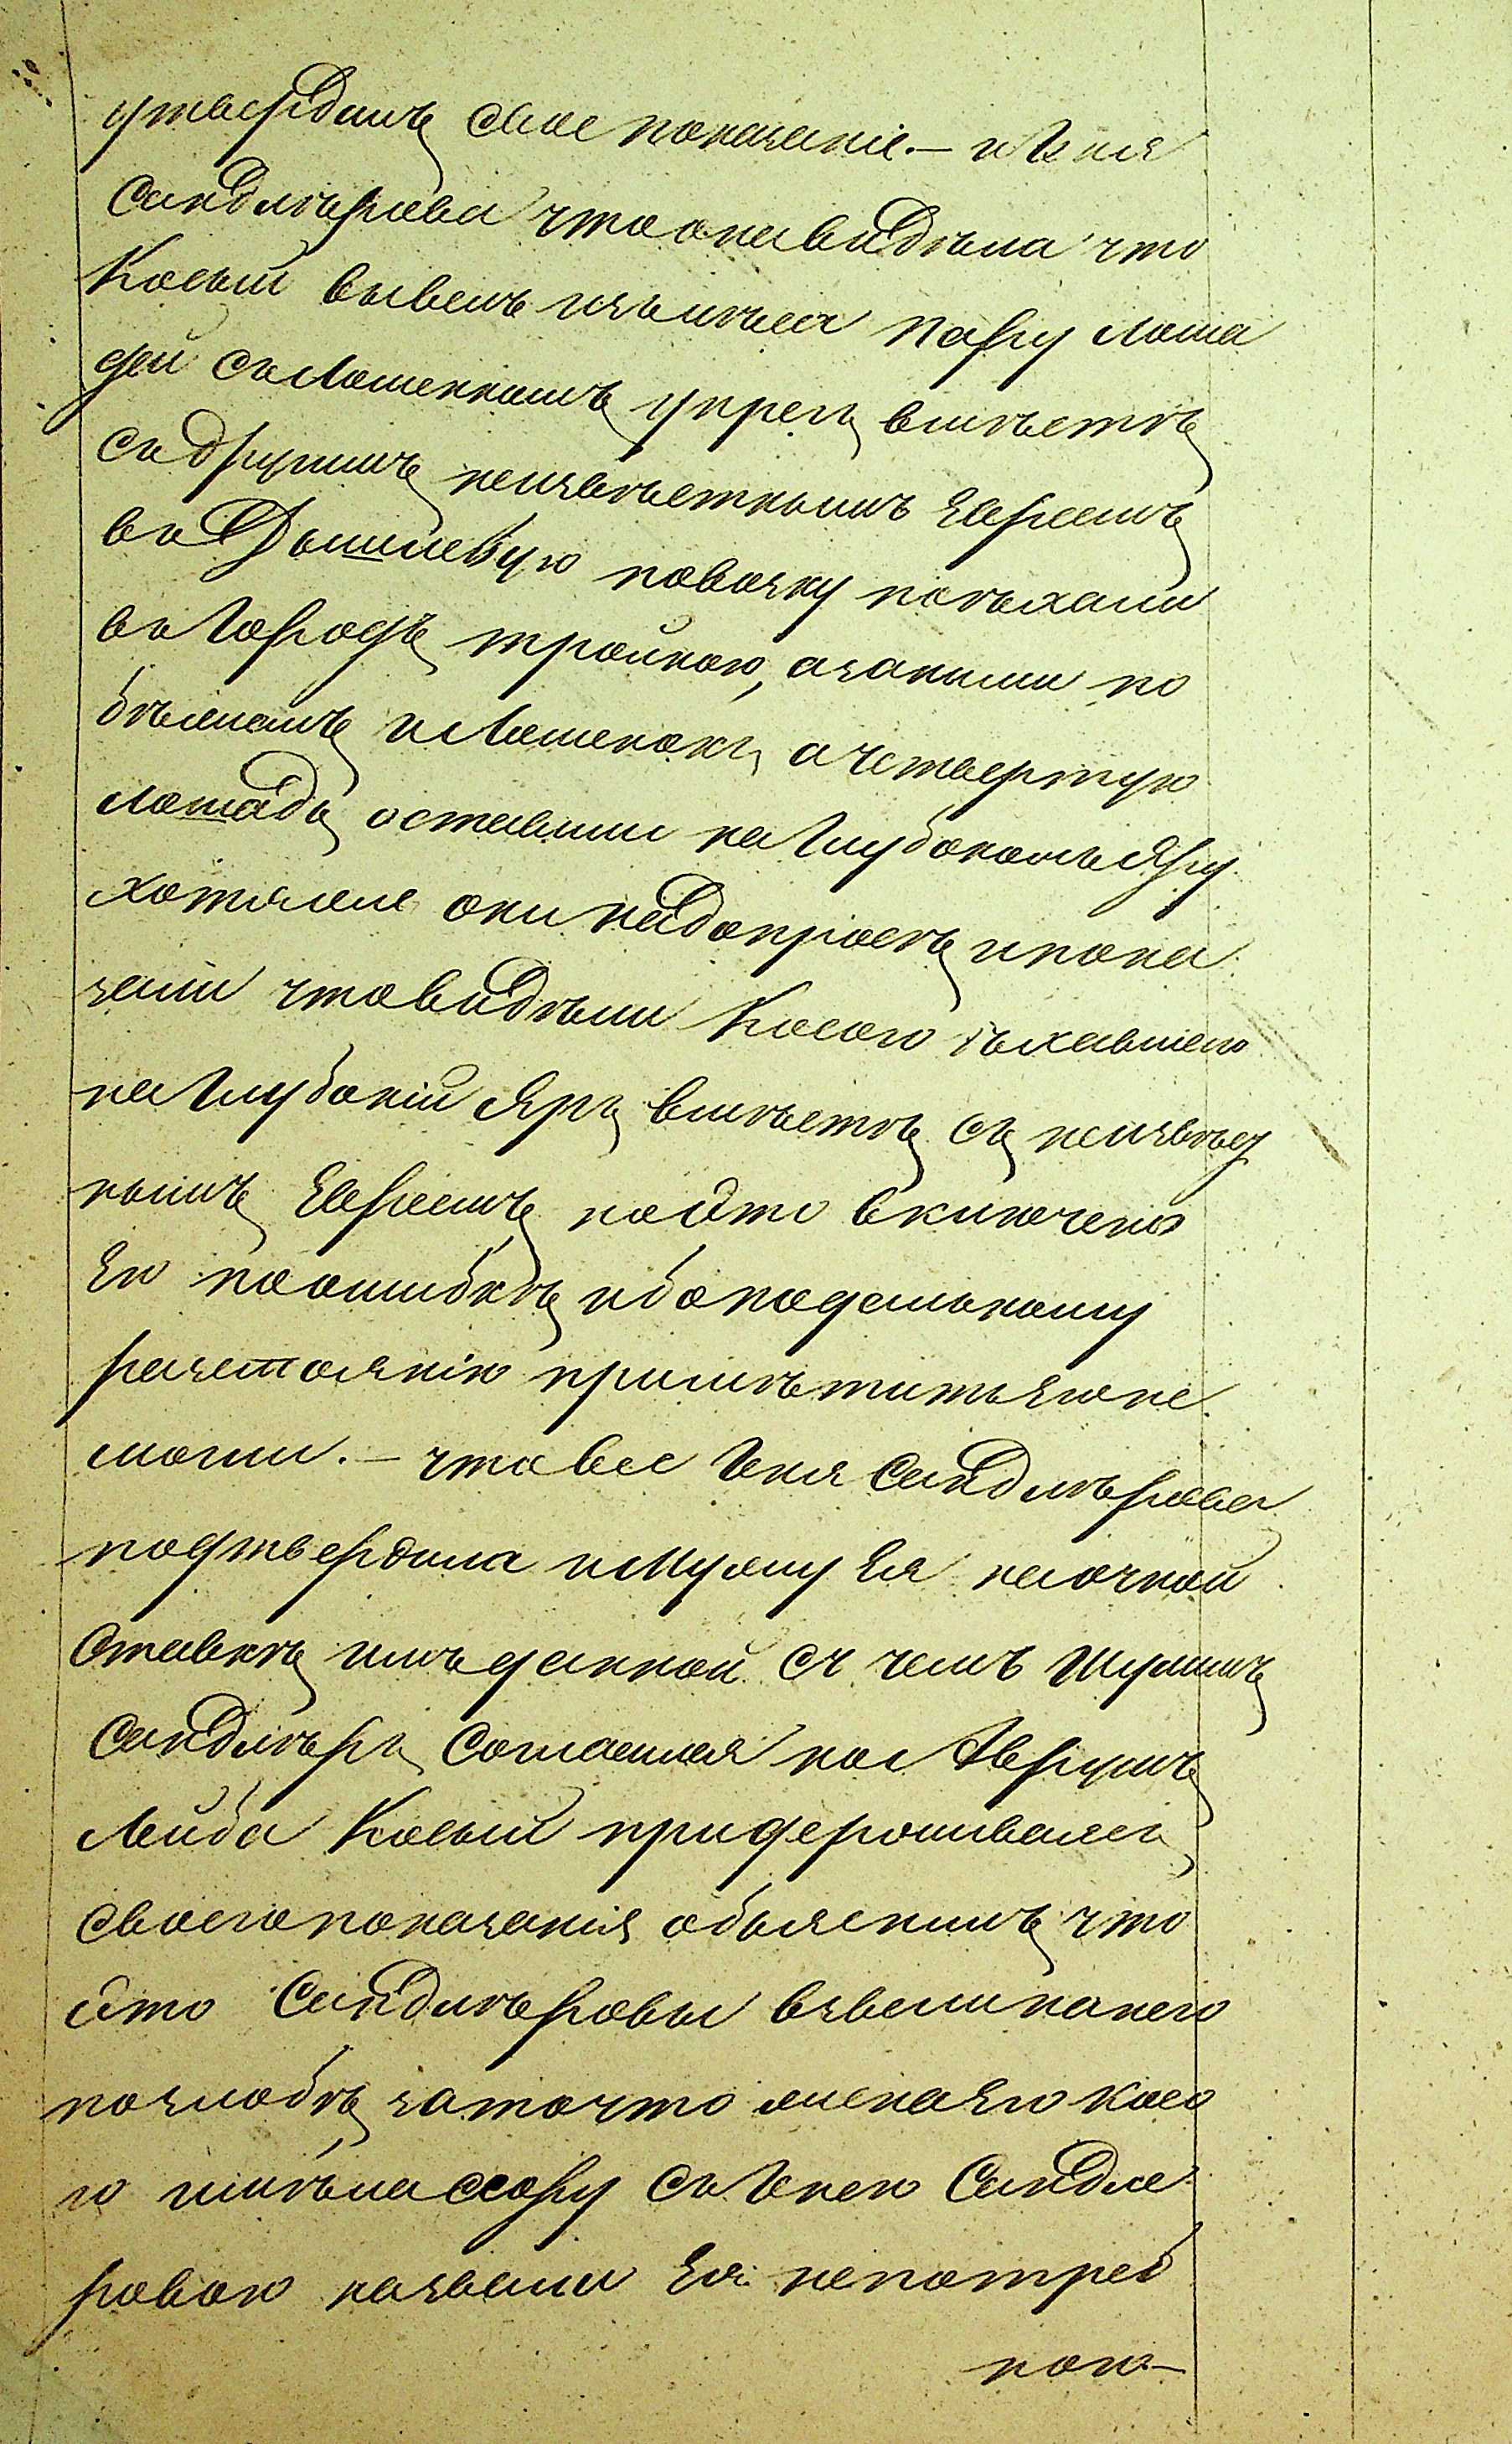 утвердилъ свое показаніе. — и Геня
Сандлѣрова что она видѣла что
Косый вывелъ изъ хлѣва пару лоша
дей съ Лошенкомъ упрегъ вмѣстѣ
съ другимъ неизвѣстнымъ Евреемъ
въ Дышлевую повозку поѣхали
въ Городъ тройкою, а за ними по
бѣжалъ и Лошенокъ, а четвертую
лошадь оставили на Глубокомъ Яру
хотя они на допросѣ и пока
зали что видѣли Косого ѣхавшего
на Глубокій Яръ вмѣстѣ съ неизвѣс
нымъ Евреемъ но это включено
Ею по ошибкѣ ибо по дальному
разстоянію примѣтить Его не
могли. — что все Геня Сандлѣрова
подтвердила и Мужу Ея на очной
Ставкѣ имъ данной съ чемъ Шулимъ
Сандлѣръ Согласился но Аврумъ
Лейба Косый придерживаясь
Своего показанія объяснилъ что
Это Сандлѣровы взвели на него
по злобѣ за то что жена Его Косо
го имѣла ссору съ Генею Сандле
ровою назвали Ея непотреб
ною —